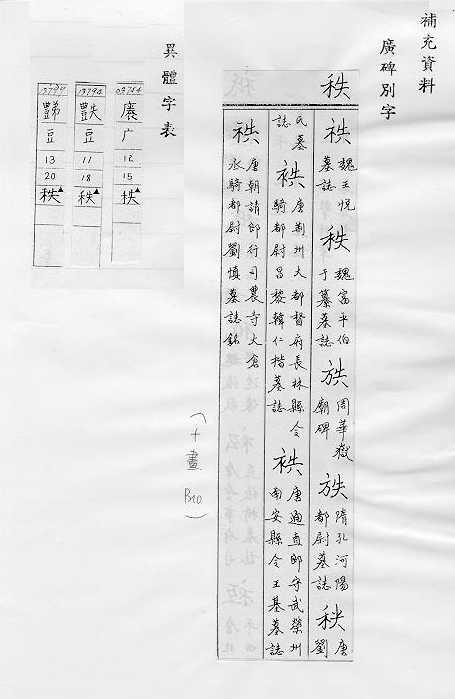 補充資料
廣碑別字
秩
祑 魏王悦墓誌 秩 魏富平伯于纂墓誌 䄃 周華嶽廟碑 䄃 隋孔河陽都尉墓誌 秧 唐劉
氏墓誌 袟 唐荊州大都督府長林縣令騎都尉昌黎韓仁楷墓誌 袟 唐通直郎守武榮州南安縣令王基墓誌
袟 唐朝請郎行司農寺大倉丞騎都尉劉慎墓誌銘
異體字表
广
12
15
秩▲
13794
豆
11
18
秩▲
豆
13
20
秩▲
(十畫 B10)